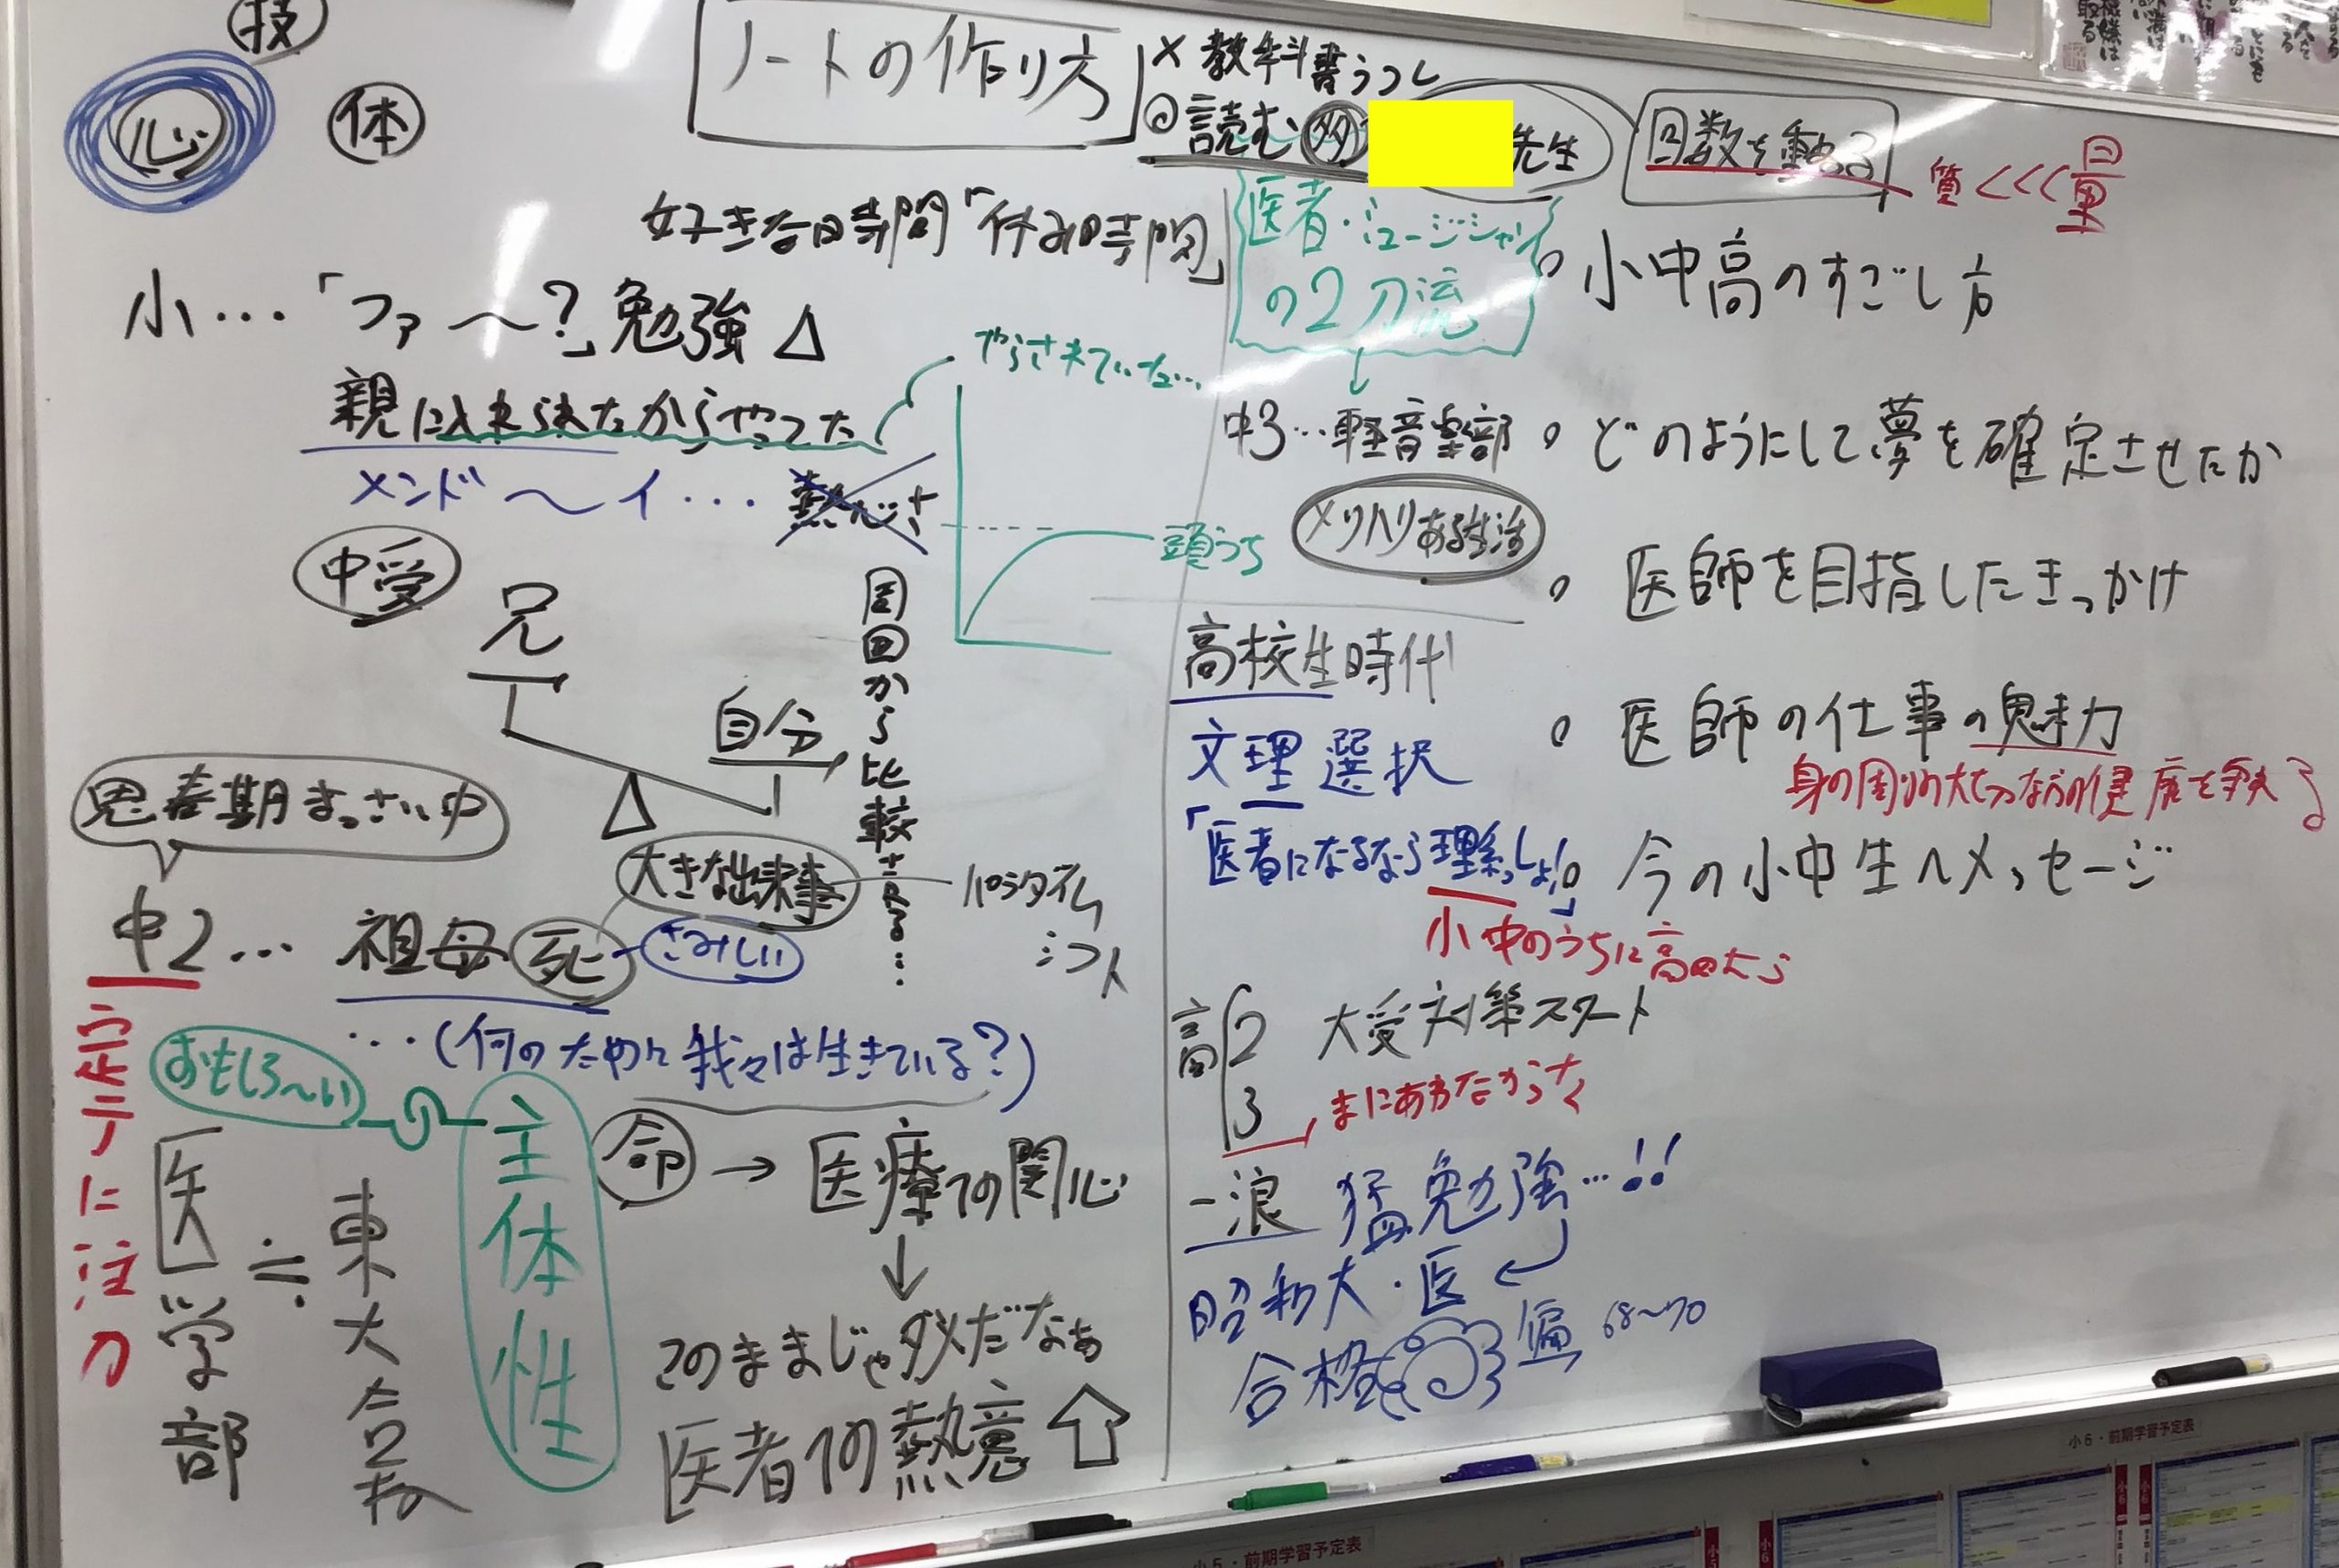 技
心
体
ノートの作り方
× 教科書うつし
◎読む 多
先生
回数を重ねる
質<<<量
好きな時間「休み時間」
医者・ミュージシャン
の2刀流
小…「ファ〜?」勉強 △
親に入れられたからやった
やらされていた…
メンド〜イ… 熱心さ
頭うち
中受
兄
自分
△
周囲から比較される…
思春期まっさい中
大きな出来事
パラダイム
シフト
中2… 祖母 死
さみしい
…(何のために我々は生きている?)
に注力
おもしろ〜い
主体性
命→医療への関心
↓
このままじゃダメだなぁ
医者への熱意
医学部
≒
東大合格
中3…軽音楽部
メリハリある生活
高校生時代
文理選択
「医者になるなら理系っしょ!」
小中のうちに高めたら
高2 大受対策スタート
3
まにあわなかった
一浪 猛勉強…!!
昭和大・医
合格
偏 68〜70
。小中高のすごし方
。どのようにして夢を確定させたか
。医師を目指したきっかけ
。医師の仕事の魅力
身の周りの大切な方の健康を救える
。今の小中生へメッセージ
小6・前期学習予定表
小5・前期学習予定表
小6